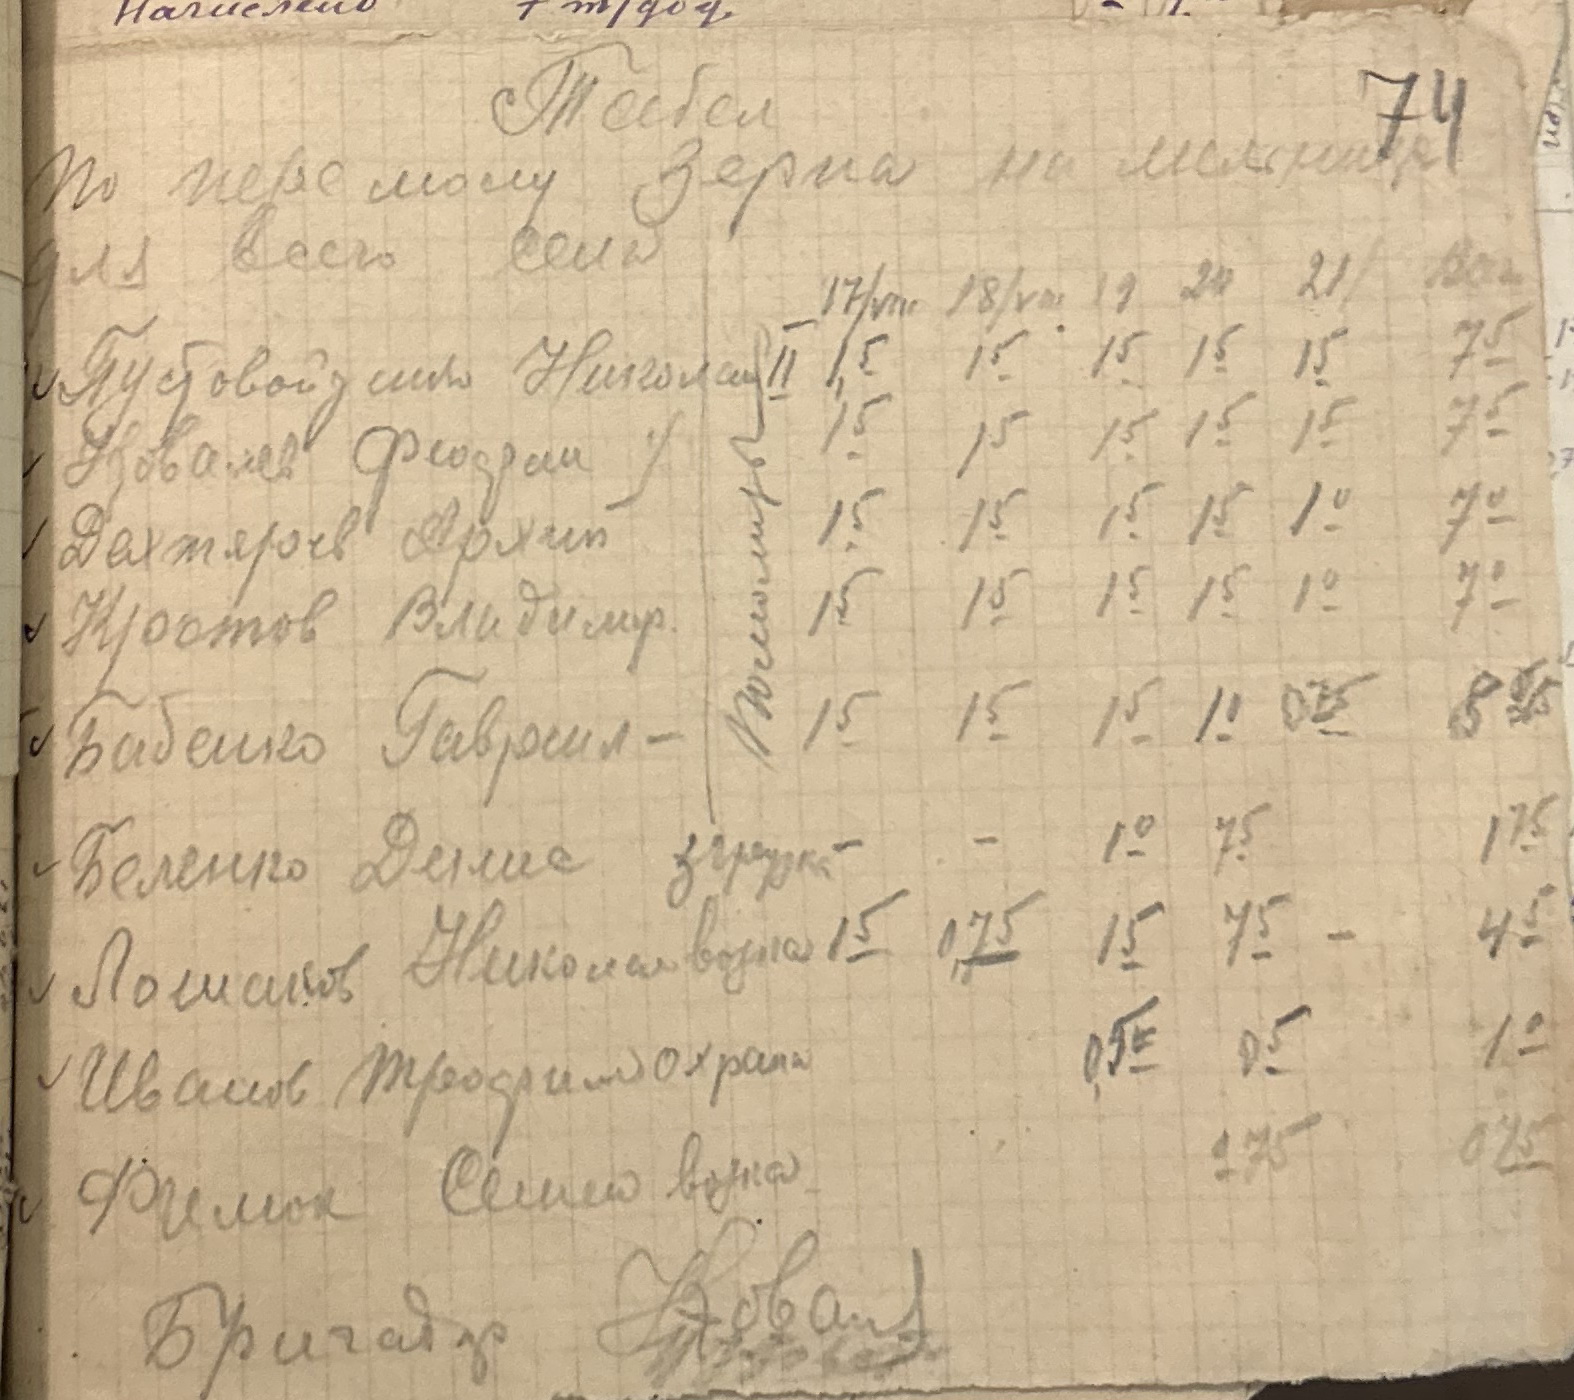 Начислено 7 т/дод.
74
Табел
По перемолу зерна на мельнице
для всего села
17/VIII 18/VIII 19 20 21/
Пустовойденко Николай II 15 15 15 15 15 75
Ковалев Феодган 15 15 15 15 15 75
Дахтяров Архип 15 15 15 15 10 70
Кротов Владимир. 15 15 15 15 10 70
Бабенко Гавриил – 15 15 15 10 075
Беленко Денис - - 10 75 175
Лошаков Николай возка 15 0,75 15 75 - 45
Иванов охрана 0,5 05 10
Филюк Семен возка 075 075
Бригадир Ковал